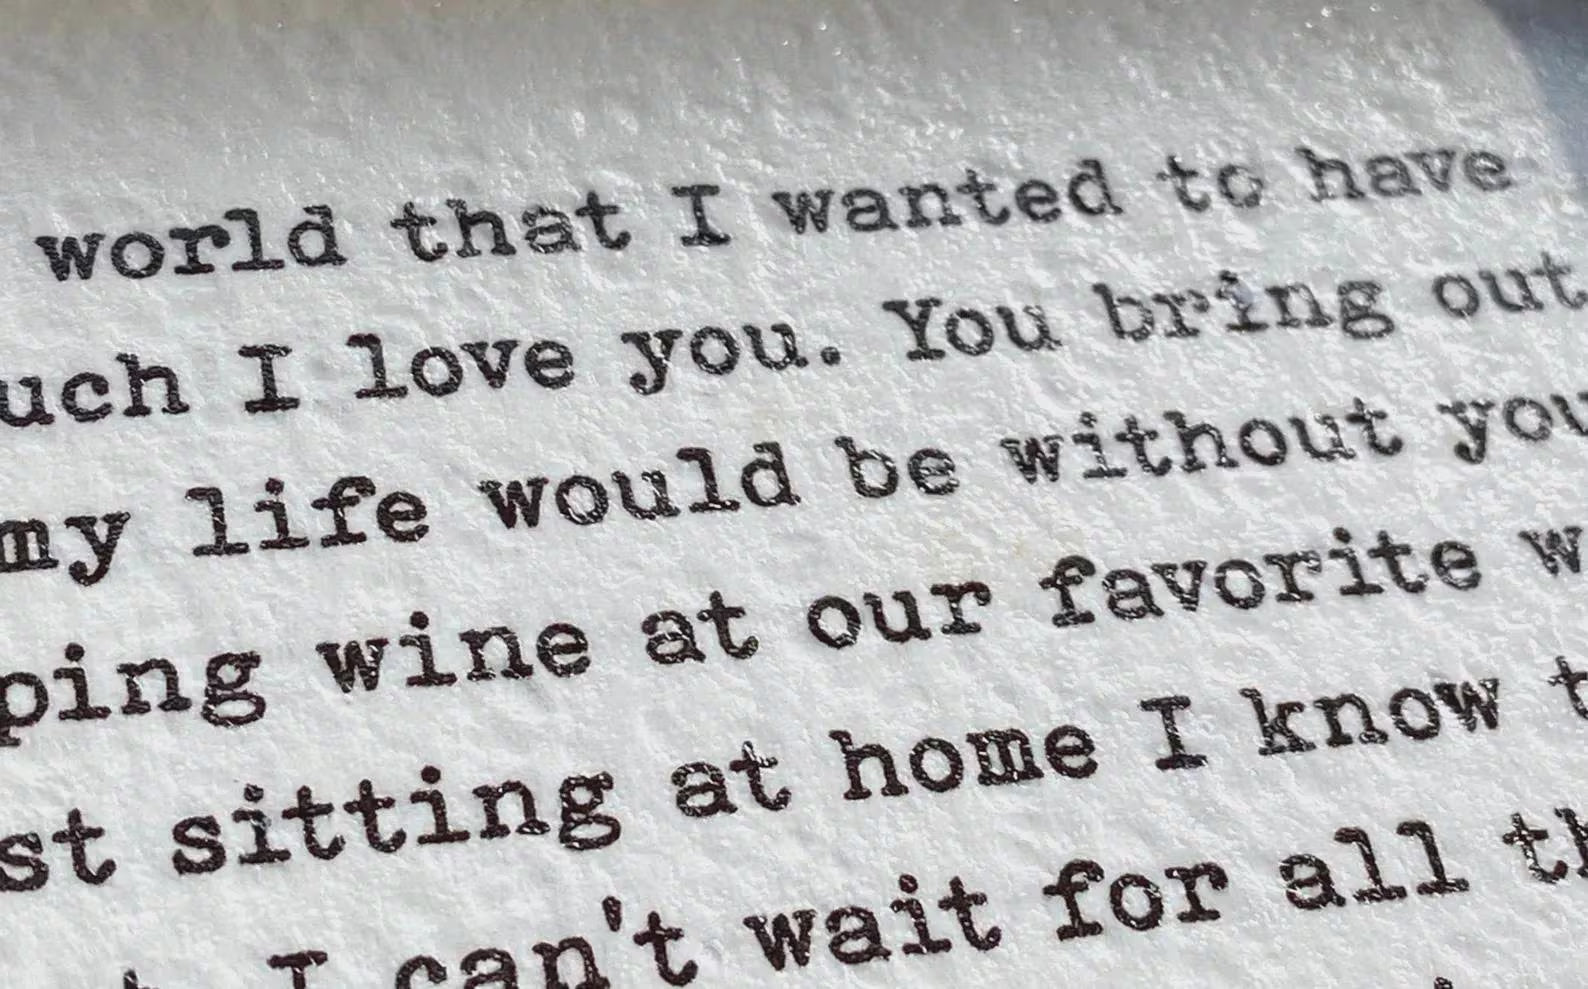 world that I wanted to have
uch I love you. You bring out
my life would be without you
ping wine at our favorite w
st sitting at home I know t
I can't wait for all th